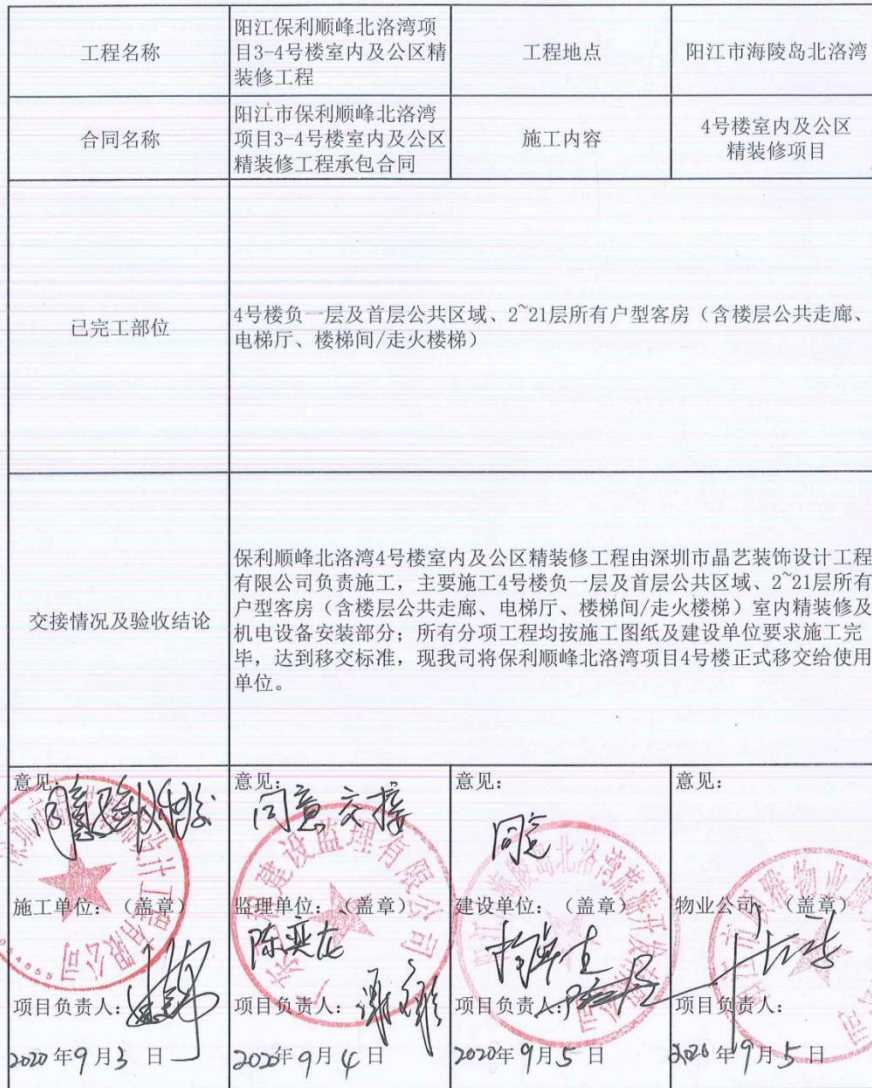 工程名称
阳江保利顺峰北洛湾项
目3-4号楼室内及公区精
装修工程
工程地点
阳江市海陵岛北洛湾
合同名称
阳江市保利顺峰北洛湾
项目3-4号楼室内及公区
精装修工程承包合同
施工内容
4号楼室内及公区
精装修项目
已完工部位
4号楼负一层及首层公共区域、2~21层所有户型客房（含楼层公共走廊、
电梯厅、楼梯间/走火楼梯）
交接情况及验收结论
保利顺峰北洛湾4号楼室内及公区精装修工程由深圳市晶艺装饰设计工程
有限公司负责施工，主要施工4号楼负一层及首层公共区域、2~21层所有
户型客房（含楼层公共走廊、电梯厅、楼梯间/走火楼梯）室内精装修及
机电设备安装部分；所有分项工程均按施工图纸及建设单位要求施工完
毕，达到移交标准，现我司将保利顺峰北洛湾项目4号楼正式移交给使用
单位。
意见：
施工单位：（盖章）
项目负责人：
2020年9月3日
意见：
同意交接
建设监理有限公司
监理单位：（盖章）
陈奕龙
项目负责人：
2020年9月4日
意见：
同意
建设单位：（盖章）
项目负责人：
2020年9月5日
意见：
物业公司：（盖章）
项目负责人：
2020年9月5日